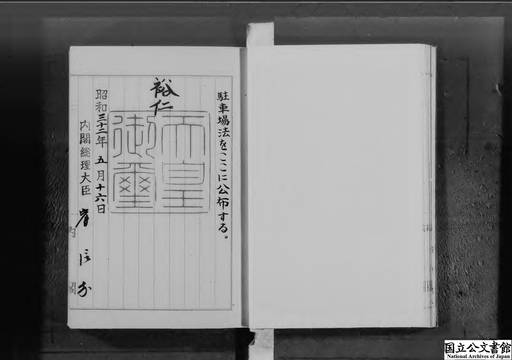 駐車場法をここに公布する。
裕仁
天皇
御璽
昭和三十二年五月十六日
内閣総理大臣 岸信介
内閣
国立公文書館
National Archives of Japan